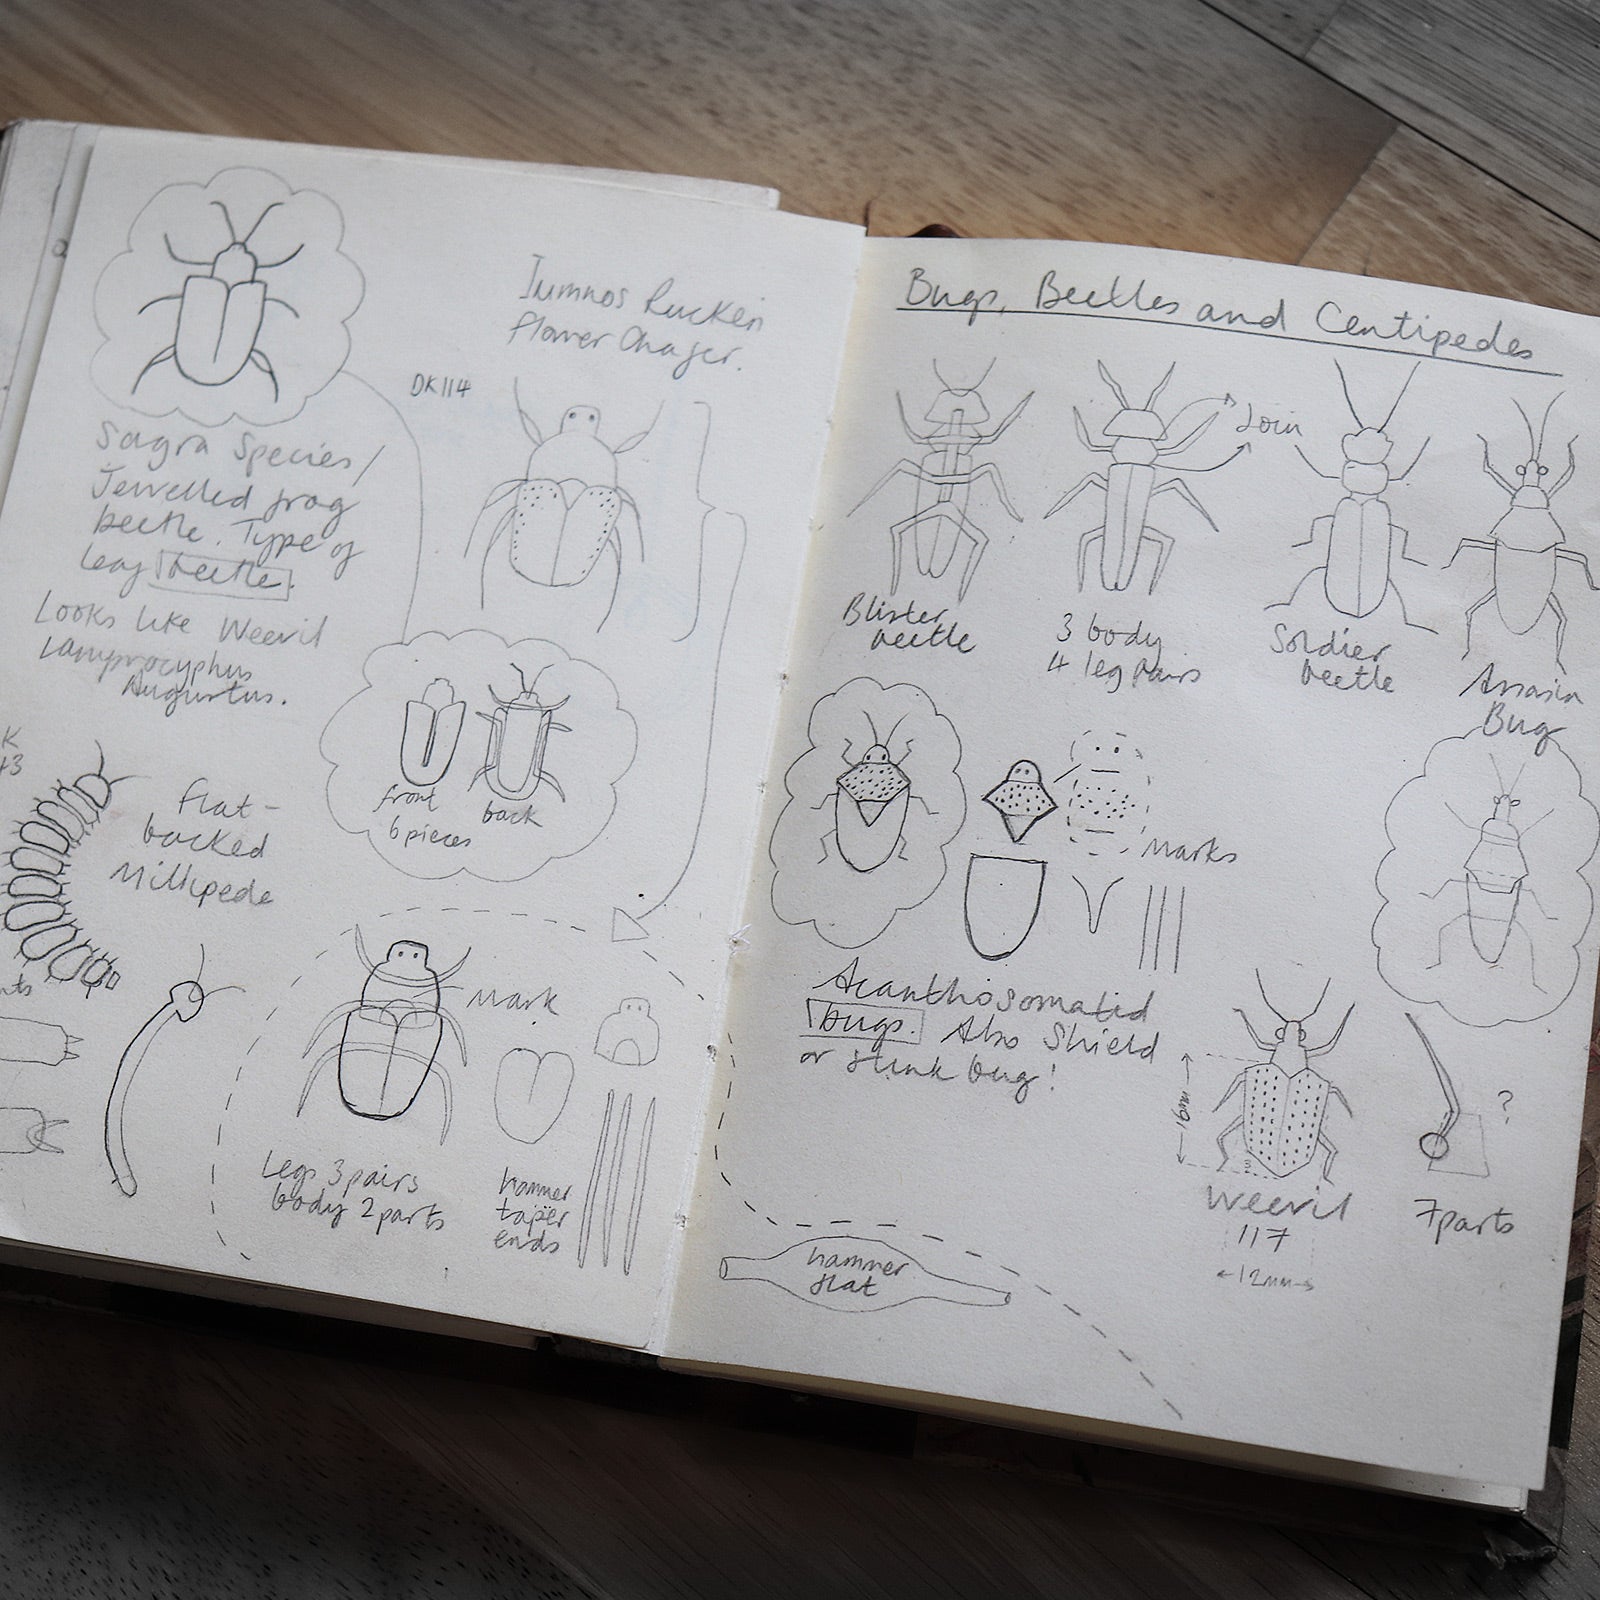 Jumnos Ruckeri
flower Chafer.
DK114
Sagra Species/
Jewelled frog
beetle. Type of
leaf beetle.
Looks like Weevil
Lamprocyphus
Augustus.
front
6 pieces
back
K
43
flat-
backed
Millipede
Mark
Legs 3 pairs
body 2 parts
hammer
taper
ends
Bugs, Beetles and Centipedes
Join
Blister
beetle
3 body
4 leg pairs
Soldier
beetle
Assasin
Bug
Marks
Acanthosomatid
bugs. Also Shield
or stink bug!
16mm
?
Weevil
117
12mm
7 parts
hammer
flat